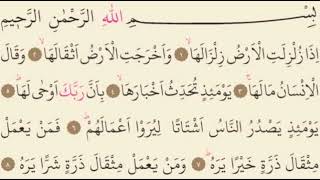 بِسْمِ اللهِ الرَّحْمٰنِ الرَّحِيمِ
اِذَا زُلْزِلَتِ الْاَرْضُ زِلْزَالَهَاۙ ﴿١﴾ وَاَخْرَجَتِ الْاَرْضُ اَثْقَالَهَاۙ ﴿٢﴾ وَقَالَ
الْاِنْسَانُ مَالَهَاۚ ﴿٣﴾ يَوْمَئِذٍ تُحَدِّثُ اَخْبَارَهَاۙ ﴿٤﴾ بِاَنَّ رَبَّكَ اَوْحٰى لَهَاۜ ﴿٥﴾
يَوْمَئِذٍ يَصْدُرُ النَّاسُ اَشْتَاتًا لِيُرَوْا اَعْمَالَهُمْۜ ﴿٦﴾ فَمَنْ يَعْمَلْ
مِثْقَالَ ذَرَّةٍ خَيْرًا يَرَهُۜ ﴿٧﴾ وَمَنْ يَعْمَلْ مِثْقَالَ ذَرَّةٍ شَرًّا يَرَهُ ﴿٨﴾